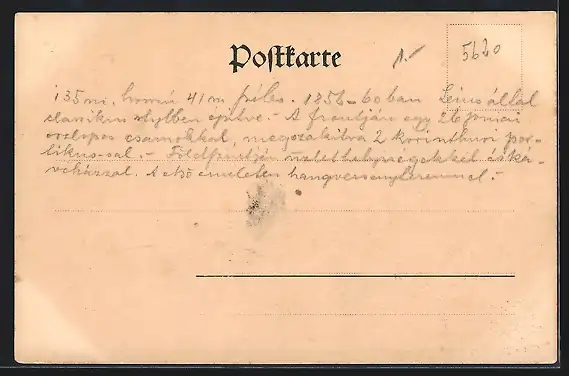 Postkarte
1.-
5620
135 m. hosszú 41 m széles. 1856-60 ban Leins által
klassikus stylben építve. - A frontján egy 26 joniai
oszlopos csarnokkal, megszakítva 2 korinthusi por-
tikus-sal. - Földszintjén üzlethelyiségekkel és ká-
véházzal. A első emeleten hangversenyteremmel. -